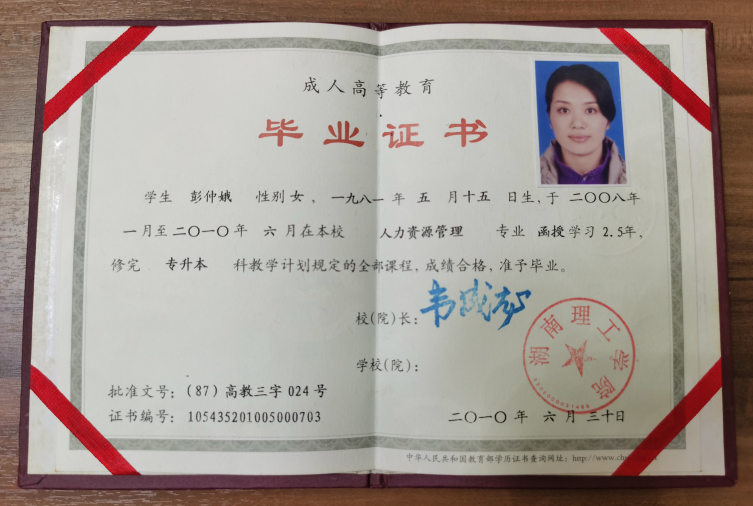 成人高等教育
毕业证书
学生 彭仲娥 性别 女, 一九八一年 五 月十五 日生, 于 二〇〇八年
一月至二〇一〇年 六 月在本校 人力资源管理 专业 函授学习 2.5年,
修完 专升本 科教学计划规定的全部课程, 成绩合格, 准予毕业。
校(院)长:
湖南理工学院
学校(院):
批准文号: (87) 高教三字 024 号
证书编号: 105435201005000703
二〇一〇年 六 月 三十日
中华人民共和国教育部学历证书查询网址: http://www.ch